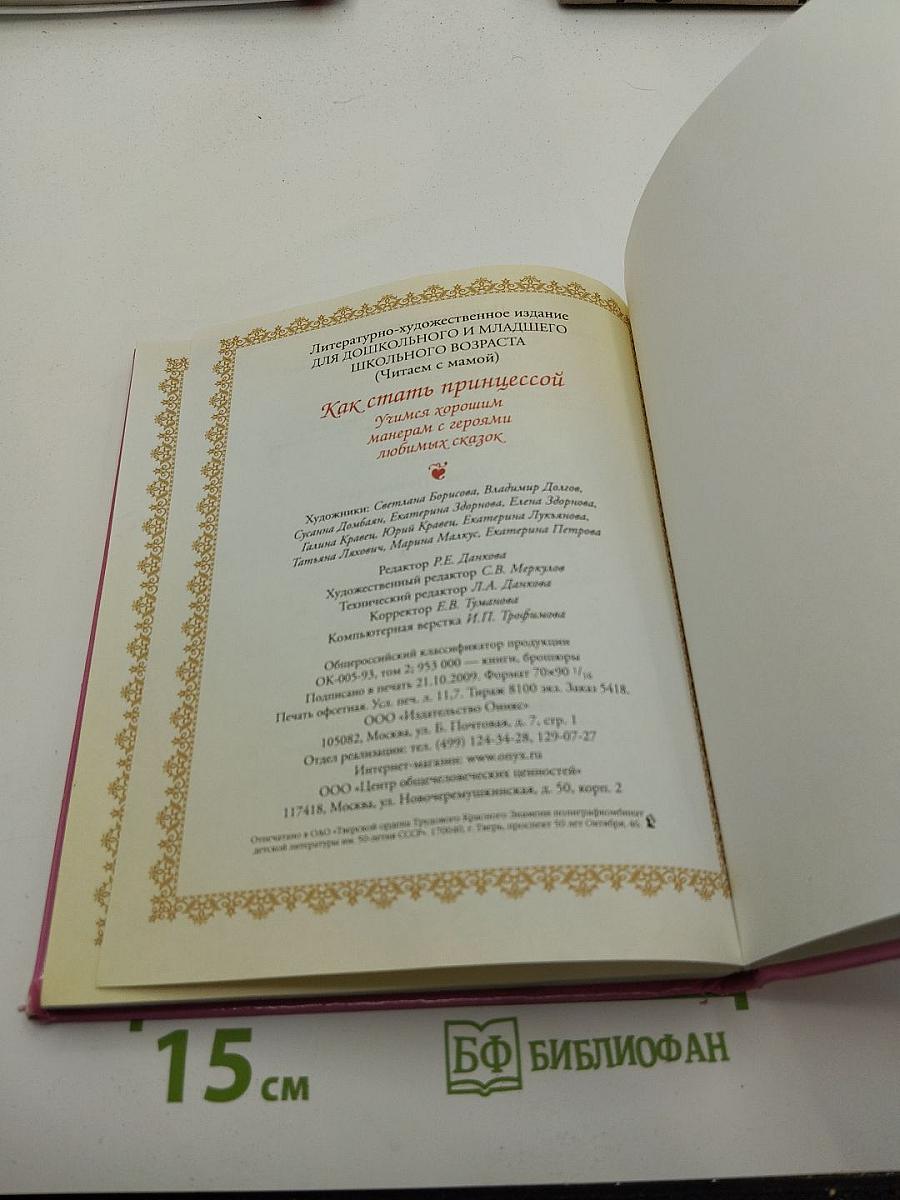 Литературно-художественное издание
ДЛЯ ДОШКОЛЬНОГО И МЛАДШЕГО
ШКОЛЬНОГО ВОЗРАСТА
(Читаем с мамой)
Как стать принцессой
Учимся хорошим
манерам с героями
любимых сказок
Художники: Светлана Борисова, Владимир Долгов,
Сусанна Домбаян, Екатерина Здорнова, Елена Здорнова,
Галина Кравец, Юрий Кравец, Екатерина Лукьянова,
Татьяна Ляхович, Марина Малкус, Екатерина Петрова
Редактор Р.Е. Данкова
Художественный редактор С.В. Меркулов
Технический редактор Л.А. Данкова
Корректор Е.В. Туманова
Компьютерная верстка И.П. Трофимова
Общероссийский классификатор продукции
ОК-005-93, том 2; 953 000 — книги, брошюры
Подписано в печать 21.10.2009. Формат 70×90 1/16
Печать офсетная. Усл. печ. л. 11,7. Тираж 8100 экз. Заказ 5418.
ООО «Издательство Оникс»
105082, Москва, ул. Б. Почтовая, д. 7, стр. 1
Отдел реализации: тел. (499) 124-34-28, 129-07-27
Интернет-магазин: www.onyx.ru
ООО «Центр общечеловеческих ценностей»
117418, Москва, ул. Новочеремушкинская, д. 50, корп. 2
Отпечатано в ОАО «Тверской ордена Трудового Красного Знамени полиграфкомбинат
детской литературы им. 50-летия СССР». 170040, г. Тверь, проспект 50 лет Октября, 46.
15 см
БФ БИБЛИОФАН